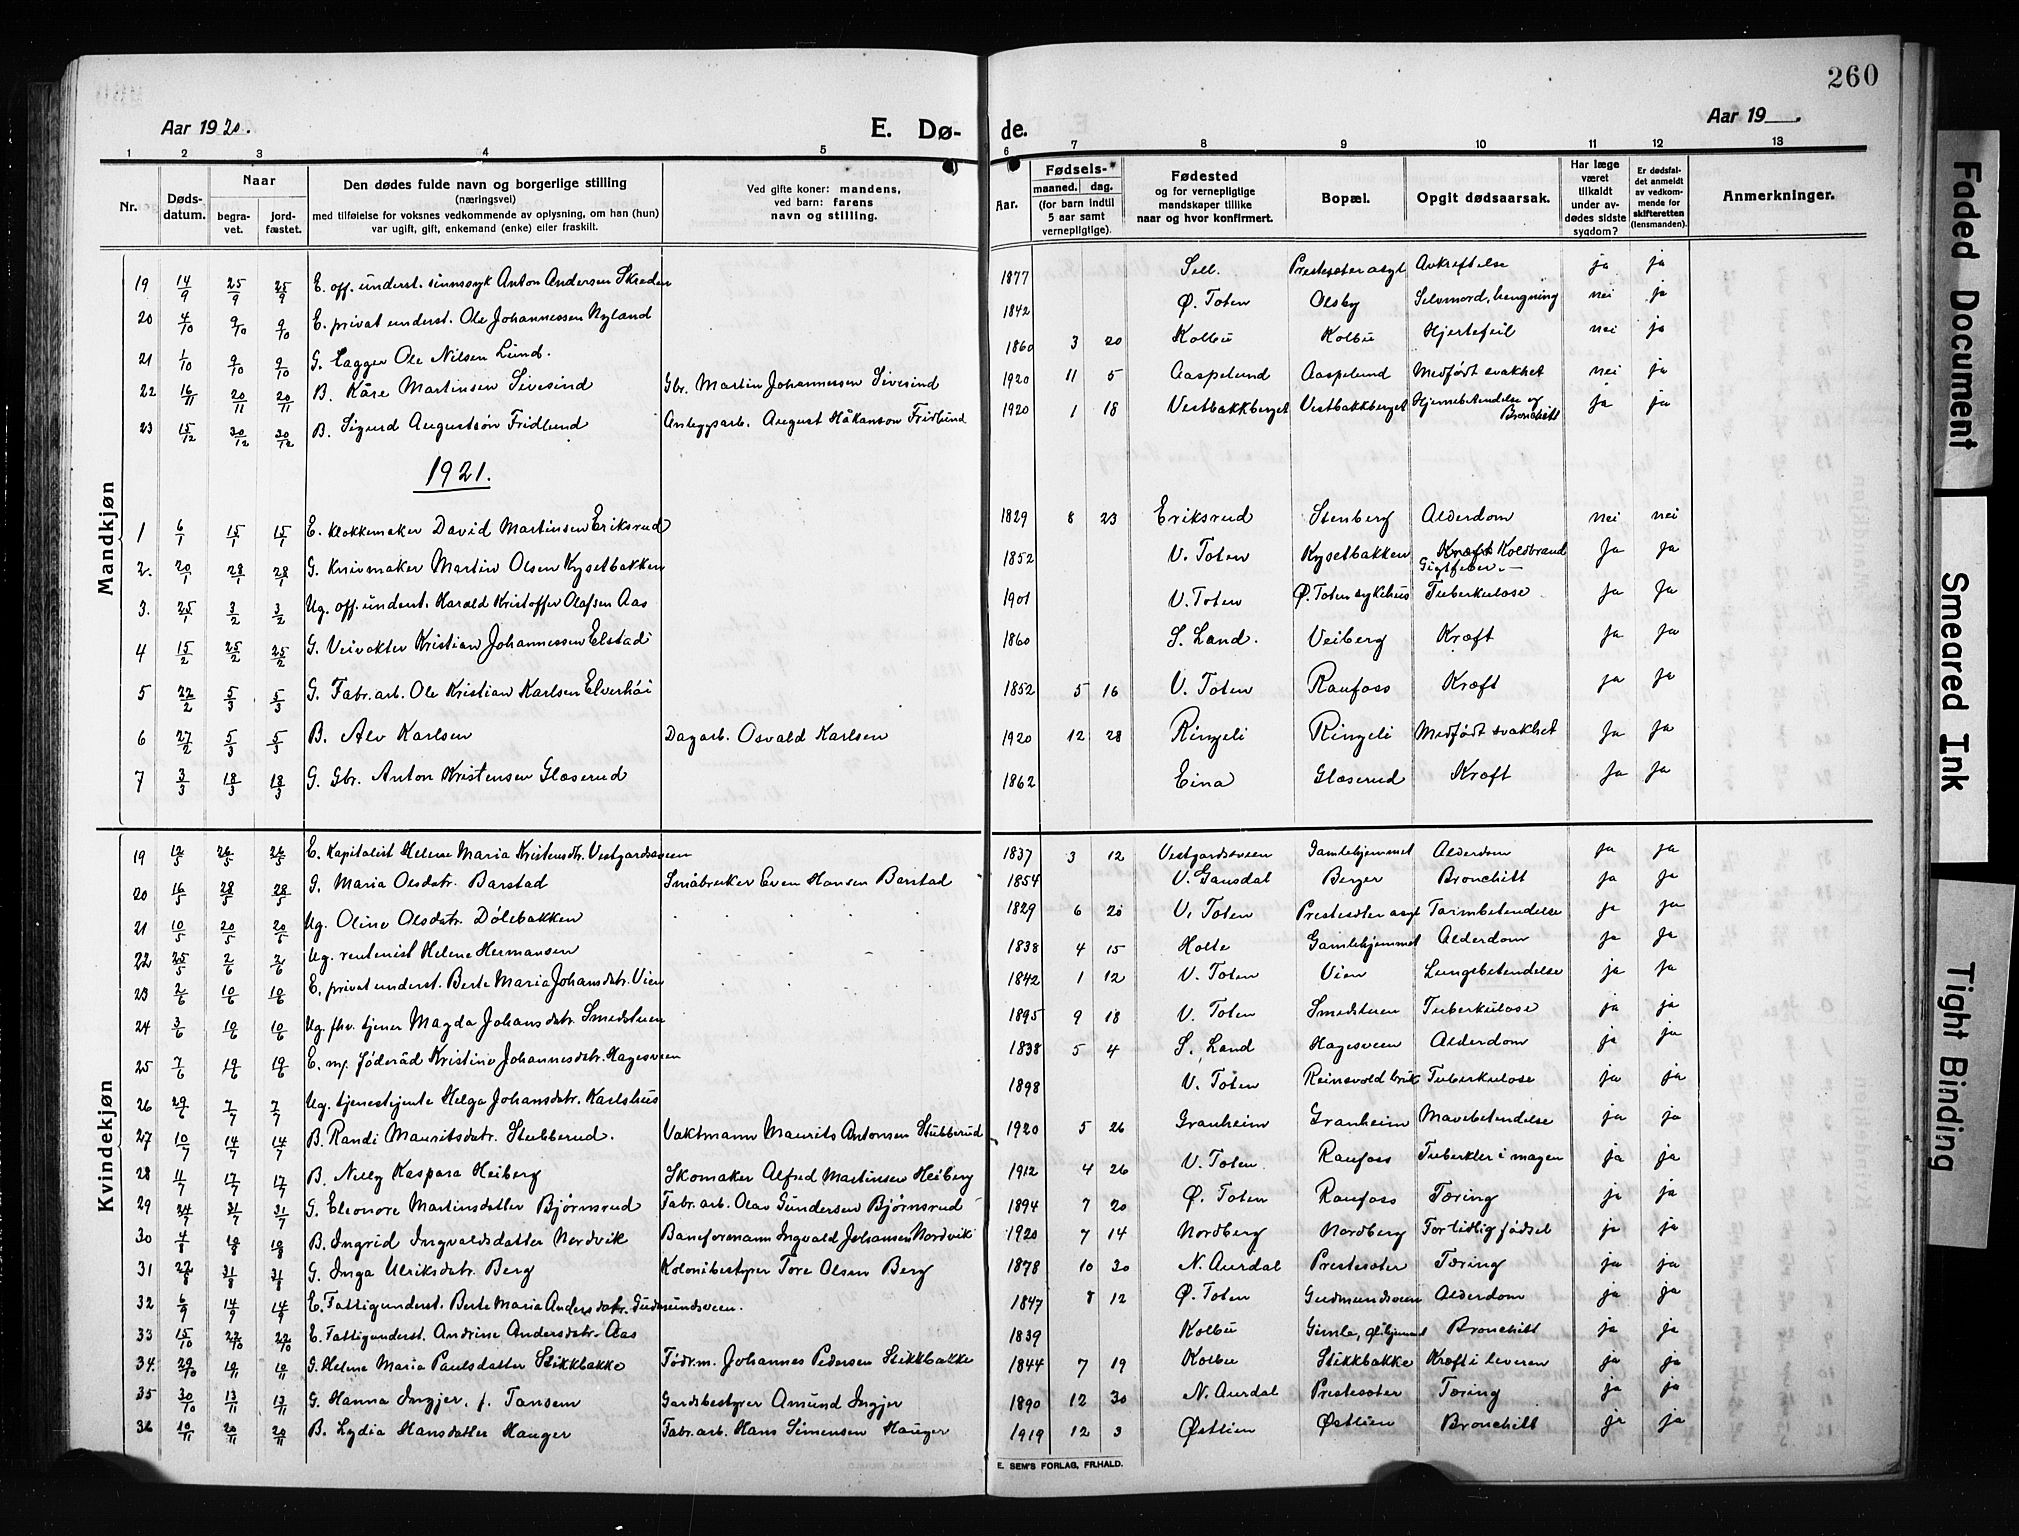 260
Aar 1920. E. Dø- de. Aar 19
1 2 3 4 5 6 7 8 9 10 11 12 13
Nr. Dødsdatum. Naar begravet. jordfæstet. Den dødes fulde navn og borgerlige stilling (næringsvei) med tilføielse for voksnes vedkommende av oplysning, om han (hun) var ugift, gift, enkemand (enke) eller fraskilt. Ved gifte koner: mandens, ved barn: farens navn og stilling. Aar. Fødsels- maaned. dag. (for barn indtil 5 aar samt vernepligtige). Fødested og for vernepligtige mandskaper tillike naar og hvor konfirmert. Bopæl. Opgit dødsaarsak. Har læge været tilkaldt under avdødes sidste sygdom? Er dødsfaldet anmeldt av vedkommende for skifteretten (lensmanden). Anmerkninger.
Mandkjøn
19 14/9 25/9 25/9 E. off. underst. sinnssyk Anton Andersen Skreden 1877 Sell. Prestesæter asyl Avkreftelse ja ja
20 4/10 9/10 9/10 E. privat underst. Ole Johannessen Nyland 1842 Ø. Toten Olsby Selvmord, hengning nei ja
21 1/10 9/10 9/10 G. Lagger Ole Nilsen Lund. 1860 3 20 Kolbu Kolbu Hjertefeil nei ja
22 16/11 20/11 20/11 B. Kåre Martinsen Sivesind Gbr. Martin Johannessen Sivesind 1920 11 5 Aaspelund Aaspelund Medfødt svakhet nei ja
23 15/12 30/12 30/12 B. Sigurd Augustsøn Fridlund Anleggsarb. August Håkanson Fridlund 1920 1 18 Vestbakkberget Vestbakkberget Hjernebetendelse og Bronchitt ja ja
1921.
1 6/1 15/1 15/1 E. klokkemaker David Martinsen Eriksrud 1829 8 23 Eriksrud Stenberg Alderdom nei nei
2. 20/1 28/1 28/1 G. Knivmaker Martin Olsen Kysetbakken 1852 V. Toten Kysetbakken Kræft Koldbrand Gigtfeber.- Ja Ja
3. 25/1 3/2 3/2 Ug. off. underst. Harald Kristoffer Olafsen Aas 1901 V. Toten Ø. Toten sykehus Tuberkulose ja Ja
4 15/2 25/2 25/2 G. Veivokter Kristian Johannessen Elstad 1860 S. Land. Veiberg Kræft ja Ja
5 22/2 5/3 5/3 G. Fabr. arb. Ole Kristian Karlsen Elverhöi 1852 5 16 V. Toten Raufoss Kræft ja ja
6 27/2 5/3 5/3 B. Alv Karlsen Dagarb. Osvald Karlsen 1920 12 28 Ringeli Ringeli Medfødt svakhet Ja Ja
7 3/3 18/3 18/3 G. Gbr. Anton Kristensen Glæserud 1862 Eina Glæserud Kræft Ja Ja
Kvindekjøn
19 12/5 26/5 26/5 E. Kapitalist Helene Maria Kristensdtr. Vestgardsveen 1837 3 12 Vestgardsveen Gamlehjemmet Alderdom ja ja
20 16/5 28/5 28/5 G. Maria Olsdatr. Barstad Småbruker Even Hansen Barstad 1854 V. Gausdal Berger Bronchitt ja ja
21 10/5 20/5 20/5 Ug. Oline Olsdtr. Dölebakken 1829 6 20 V. Toten Prestesæter asyl Tarmbetendelse ja ja
22 25/5 2/6 2/6 Ug. rentenist Helene Hermansen 1838 4 15 Holte Gamlehjemmet Alderdom ja ja
23 2/6 10/6 10/6 E. privat underst. Berte Maria Johansdatr. Vien 1842 1 12 V. Toten Vien Lungebetendelse ja ja
24 3/6 10/6 10/6 Ug. fhv. tjener Magda Johansdatr. Smedstuen 1895 9 18 V. Toten Smedstuen Tuberkulose ja ja
25 7/6 19/6 19/6 E. m/ föderåd Kristine Johannesdtr. Hagesveen 1838 5 4 S. Land Hagesveen Alderdom ja ja
26 29/6 7/7 7/7 Ug. tjenestejente Helga Johansdatr. Karlshus 1898 V. Toten Reinsvold bruk Tuberkulose ja ja
27 10/7 14/7 14/7 B. Randi Mauritsdatr. Stubberud. Vaktmann Maurits Antonsen Stubberud 1920 5 26 Granheim Granheim Mavebetendelse ja ja
28 11/7 17/7 17/7 B. Nelly Kaspara Heiberg Skomaker Alfred Martinsen Heiberg 1912 4 26 V. Toten Raufoss Tuberkler i magen ja ja
29 24/7 31/7 31/7 G. Eleonore Martinsdatter Bjørnsrud Fabr. arb. Olav Gundersen Bjørnsrud 1894 7 20 Ø. Toten Raufoss Tæring ja ja
30 4/8 18/8 18/8 B. Ingrid Ingvaldsdatter Nordvik Baneformann Ingvald Johansen Nordvik 1920 7 14 Nordberg Nordberg For tidlig fødsel ja ja
31 22/8 31/8 31/8 G. Inga Ulriksdatr. Berg Kolonibestyrer Tore Olsen Berg 1878 10 30 N. Aurdal Prestesæter Tæring ja ja
32 6/9 14/9 14/9 E. Fattigunderst. Berte Maria Andersdatr. Gudmundsveen. 1847 8 12 Ø. Toten Gudmundsveen Alderdom ja ja
33 15/10 22/10 22/10 E. Fattigunderst. Andrine Andersdatr. Aas 1839 Kolbu Gimle, Bronchitt ja ja
34. 29/10 10/11 10/11 G. Helene Maria Paulsdatter Stikkbakke Födr.m. Johannes Pedersen Stikkbakke 1844 7 19 Kolbu Stikkbakke Kræft i leveren ja ja
35 30/10 13/11 13/11 G. Hanna Ingjer, f. Tansem Gardsbestyrer Amund Ingjer 1890 12 30 N. Aurdal Prestesæter Tæring ja ja
36 10/11 20/11 20/11 B. Lydia Hansdatter Hauger Fabr. arb. Hans Simensen Hauger 1919 12 3 Østlien Østlien Bronchitt ja ja
E. SEM'S FORLAG, FR.HALD.
Faded Document
Smeared Ink
Tight Binding